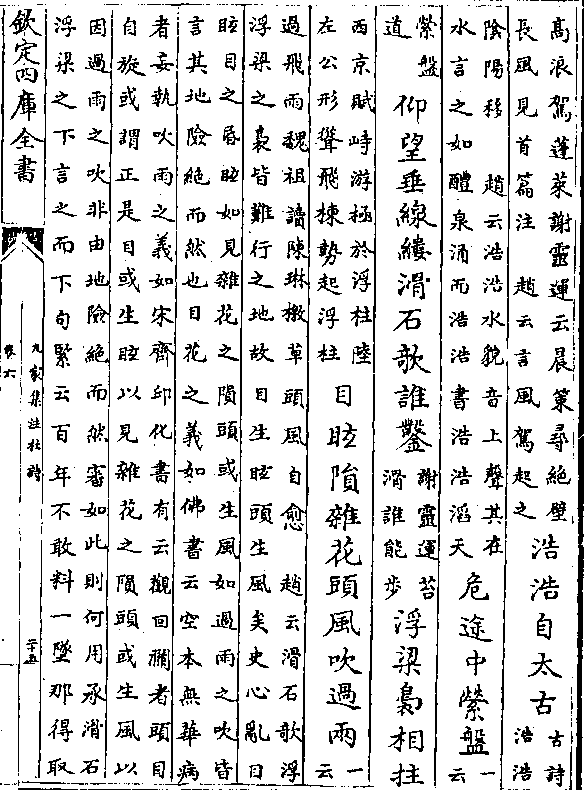 高浪駕蓬萊謝靈運云晨策尋絶壁
長風見首篇注 趙云言風駕起之
浩浩自太古
古詩
浩浩
陰陽移 趙云浩浩水貌音上聲其在
水言之如醴泉涌而浩浩書浩浩滔天
危途中縈盤
一
云
縈盤
道
仰望垂線縷滑石欹誰鑿
謝靈運苔
滑誰能步
浮梁裊相拄
西京賦峙游極於浮柱陸
左公形聳飛棟勢起浮柱
目眩隕雜花頭風吹過雨
一
云
過飛雨魏祖讀陳琳檄草頭風自愈 趙云滑石欹浮
浮梁之裊皆難行之地故目生眩頭生風矣史心亂目
眩目之昏眩如見雜花之隕頭或生風如過雨之吹皆
言其地險絶而然也目花之義如佛書云空本無華病
者妄執吹雨之義如宋齊邱化書有云觀回瀾者頭目
自旋或謂正是目或生眩以見雜花之隕頭或生風以
因過雨之吹非由地險絶而然審如此則何用承滑石
浮梁之下言之而下句緊云百年不敢料一墜那得取
欽定四庫全書
九家集註杜詩
卷六
二十五